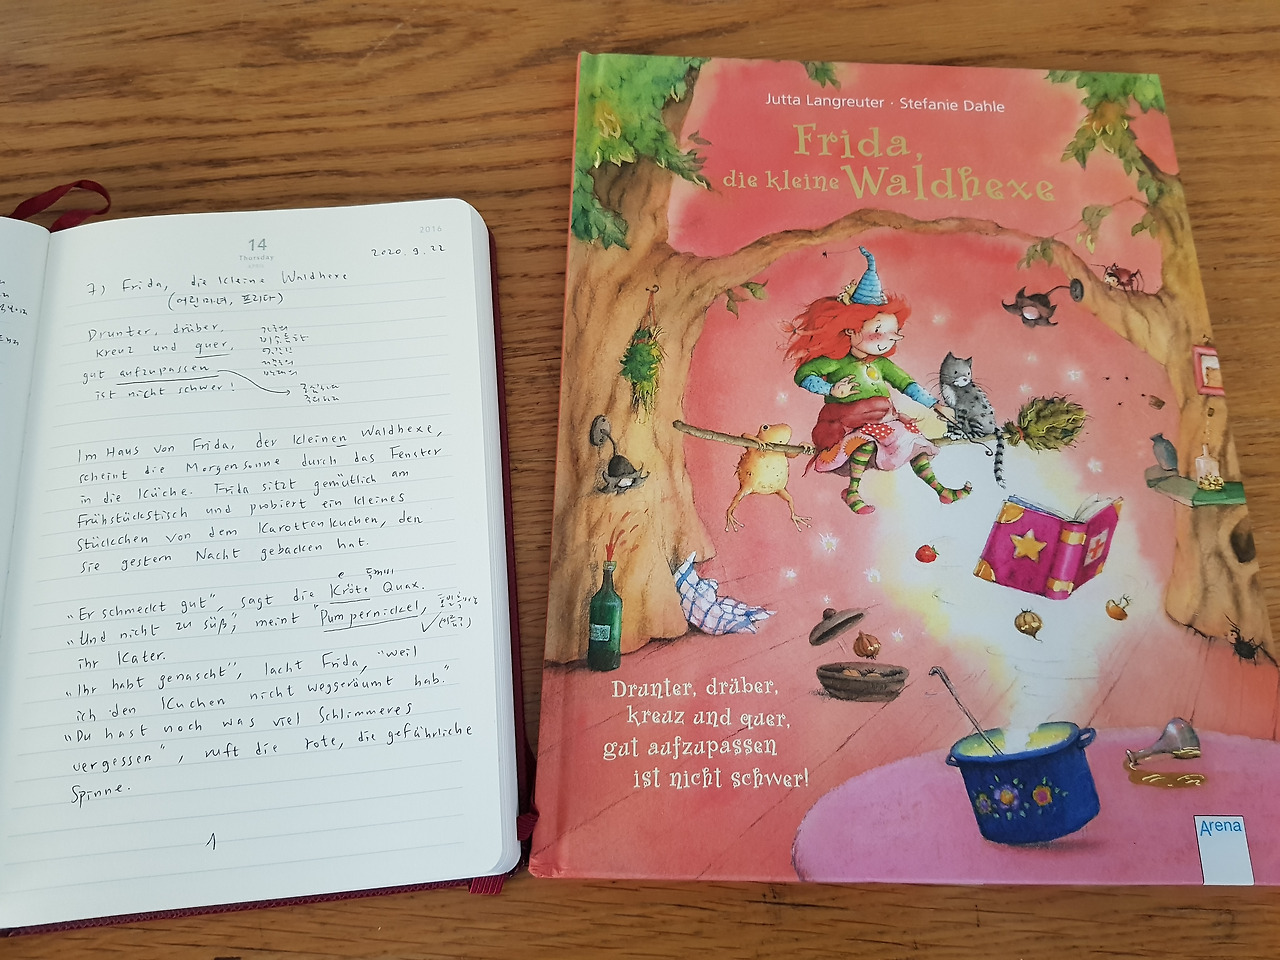 14
Thursday
2016
2020. 9. 22
7) Frida, die kleine Waldhexe
(어린마녀, 프리다)
Drunter, drüber,
kreuz und quer,
gut aufzupassen
ist nicht schwer!
Im Haus von Frida, der kleinen Waldhexe,
scheint die Morgensonne durch das Fenster
in die Küche. Frida sitzt gemütlich am
Frühstückstisch und probiert ein kleines
Stückchen von dem Karottenkuchen, den
sie gestern Nacht gebacken hat.
"Er schmeckt gut", sagt die Kröte Quax.
"Und nicht zu süß", meint "Pumpernickel,
ihr Kater.
"Ihr habt genascht", lacht Frida, "weil
ich den Kuchen nicht weggeräumt hab."
"Du hast noch was viel Schlimmeres
vergessen", ruft die rote, die gefährliche
Spinne.
1
Jutta Langreuter · Stefanie Dahle
Frida,
die kleine Waldhexe
Drunter, drüber,
kreuz und quer,
gut aufzupassen
ist nicht schwer!
Arena